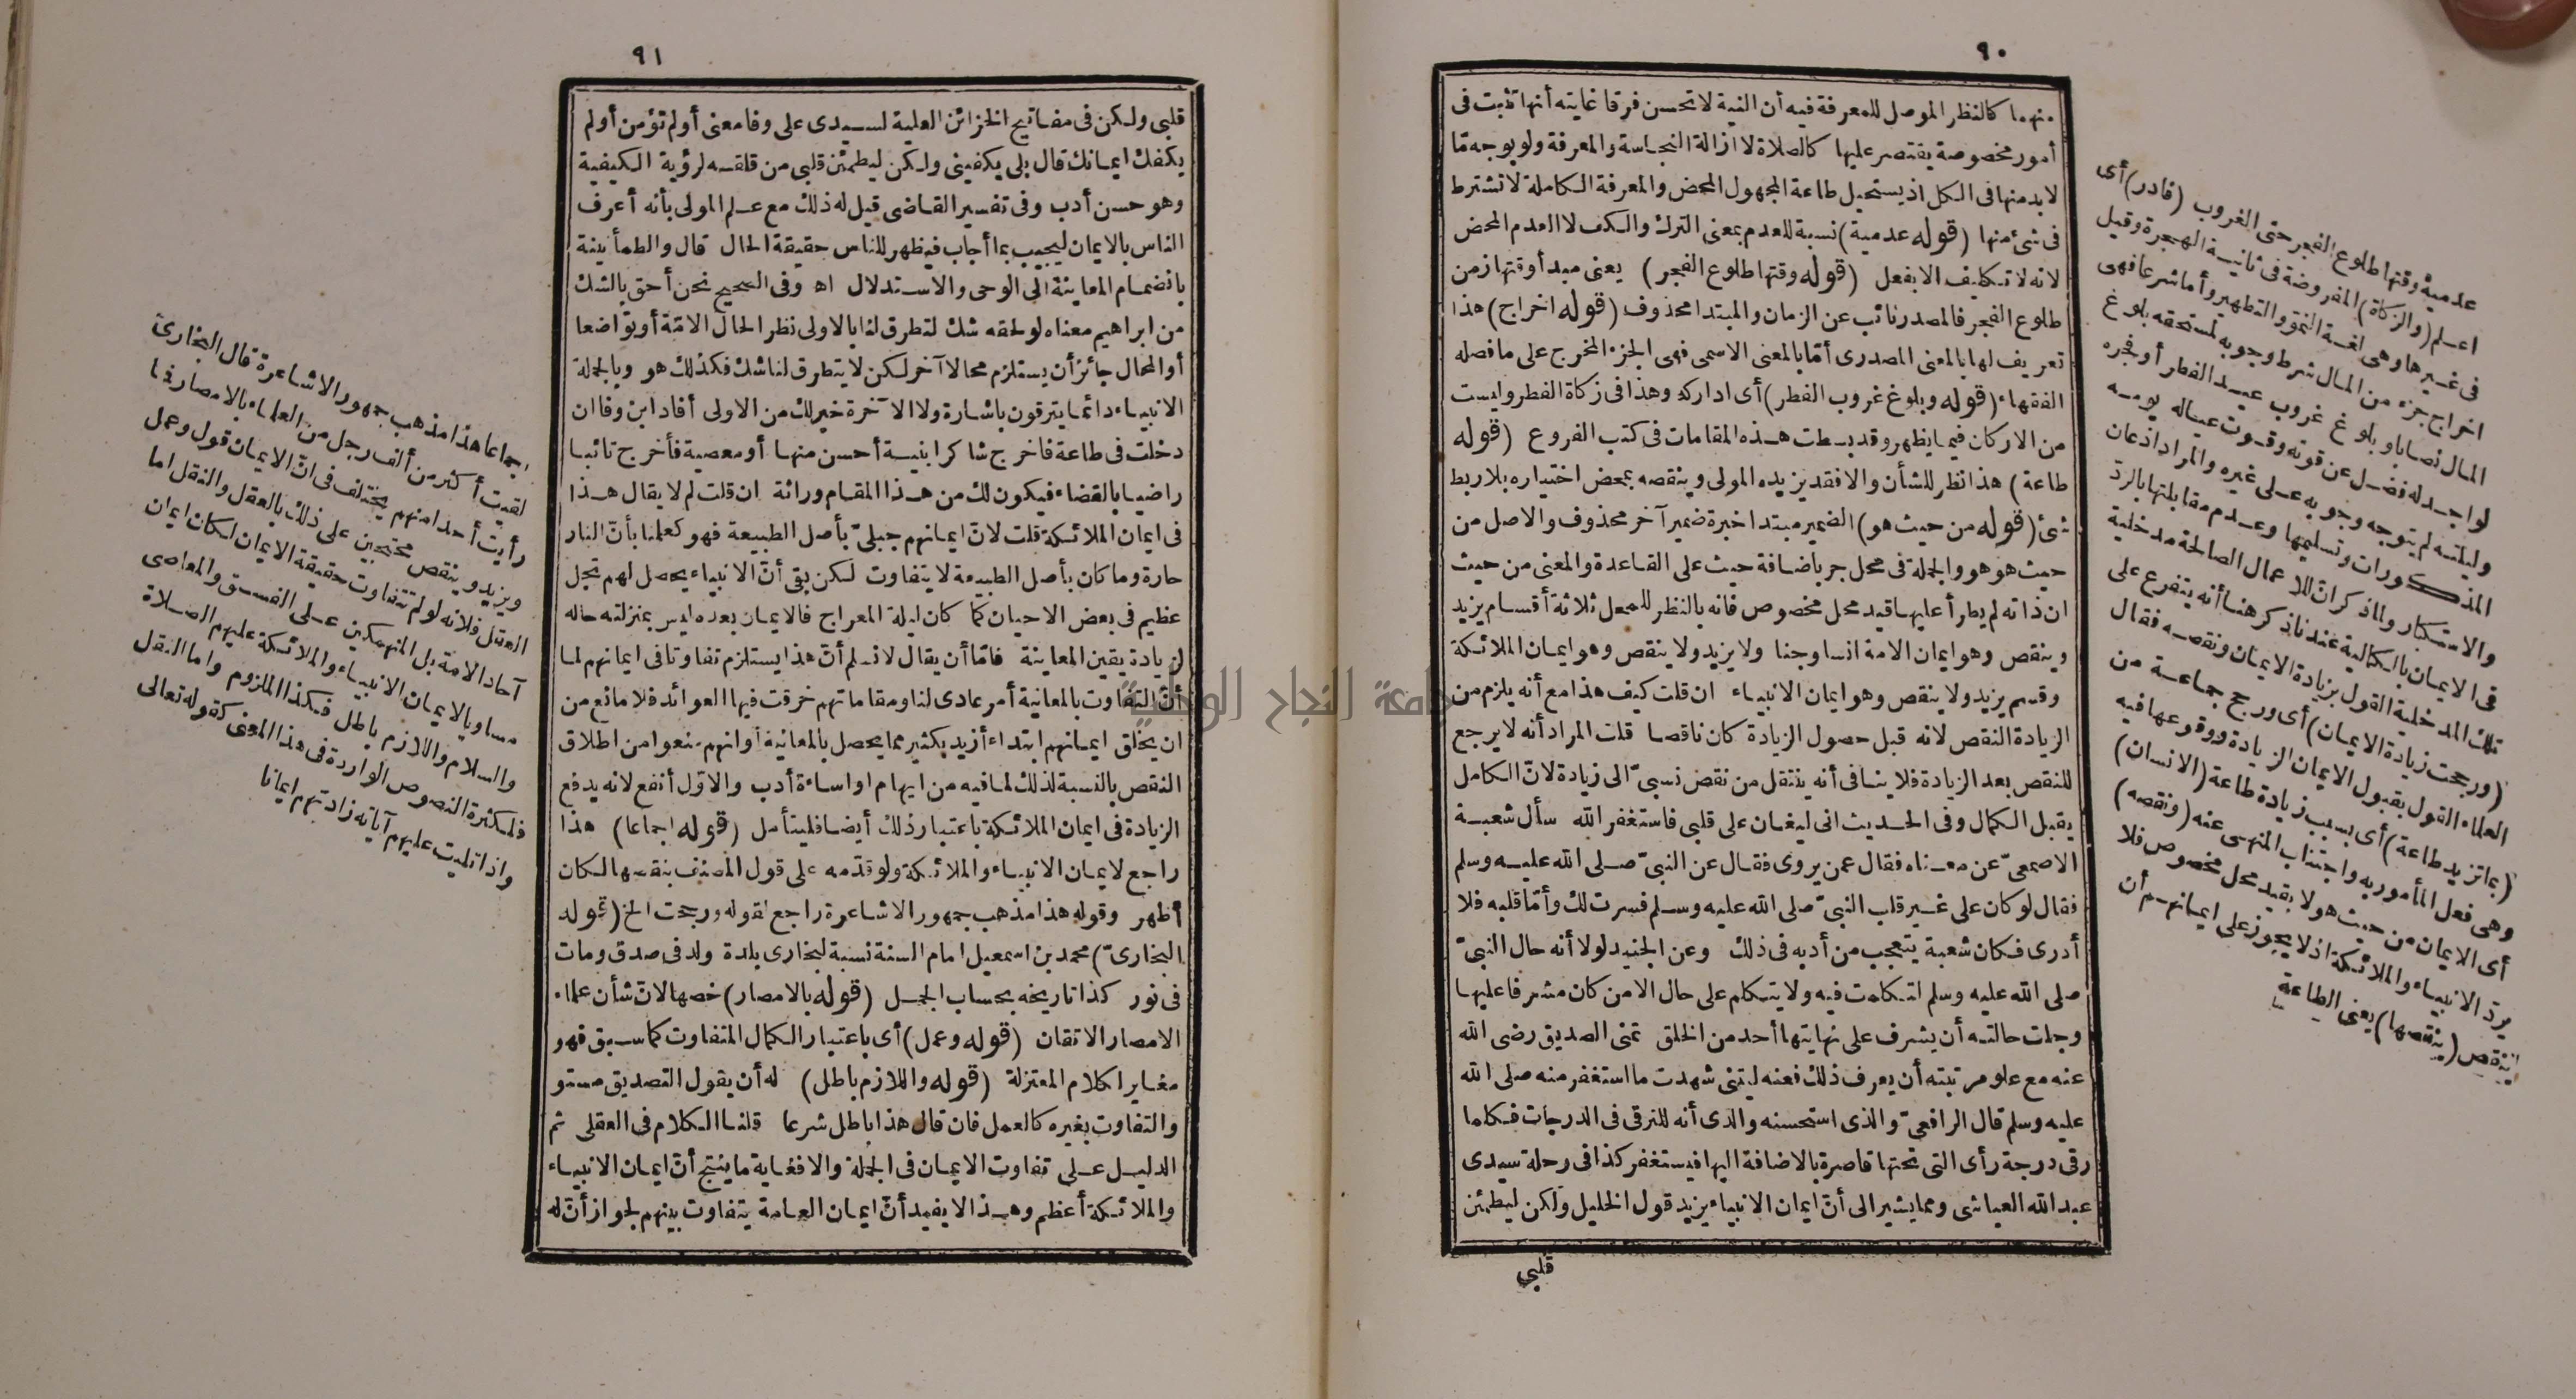 ٩٠
منهما كالنظر الموصل للمعرفة فيه أن النية لا تحسن فرقا غايته أنها تثبت فى
أمور مخصوصة يقتصر عليها كالصلاة لا ازالة النجاسة والمعرفة ولو بوجه مّا
لابد منها فى الكل اذ يستحيل طاعة المجهول المحض والمعرفة الكاملة لا تشترط
فى شئ منها (قوله عدمية) نسبة للعدم بمعنى الترك والكف لا العدم المحض
لانه لا تكليف الا بفعل (قوله وقتها طلوع الفجر) يعنى مبدأ وقتها زمن
طلوع الفجر فالمصدر نائب عن الزمان والمبتدا محذوف (قوله اخراج) هذا
تعريف لها بالمعنى المصدرى أمّا بالمعنى الاسمى فهى الجزء المخرج على ما فصله
الفقهاء (قوله وبلوغ غروب الفطر) أى ادراكه وهذا فى زكاة الفطر وليست
من الاركان فيما يظهر وقد بسطت هذه المقامات فى كتب الفروع (قوله
طاعة) هذا نظر للشأن والا فقد يزيده المولى وينقصه بمحض اختياره بلا ربط
شئ (قوله من حيث هو) الضمير مبتدا خبرة ضمير آخر محذوف والاصل من
حيث هو هو والجملة فى محل جر باضافة حيث على القاعدة والمعنى من حيث
ان ذاته لم يطرأ عليها قيد محل مخصوص فانه بالنظر للمحل ثلاثة أقسام يزيد
وينقص وهو ايمان الامة انسا وجنا ولا يزيد ولا ينقص وهو ايمان الملائكة
وقسم يزيد ولا ينقص وهو ايمان الانبياء ان قلت كيف هذا مع أنه يلزم من
الزيادة النقص لانه قبل حصول الزيادة كان ناقصا قلت المراد أنه لا يرجع
للنقص بعد الزيادة فلا ينافى أنه ينتقل من نقص نسبىّ الى زيادة لانّ الكامل
يقبل الكمال وفى الحديث انى ليغان على قلبى فاستغفر الله سأل شعبة
الاصمعىّ عن معناه فقال عمن يروى فقال عن النبىّ صلى الله عليه وسلم
فقال لو كان على غير قلب النبىّ صلى الله عليه وسلم فسرت لك وأمّا قلبه فلا
أدرى فكان شعبة يتعجب من أدبه فى ذلك وعن الجنيد لولا أنه حال النبىّ
صلى الله عليه وسلم لتكلمت فيه ولا يتكلم على حال الا من كان مشرفا عليها
وجلت حالته أن يشرف على نهايتها أحد من الخلق تمنى الصديق رضى الله
عنه مع علو مرتبته أن يعرف ذلك فعنه ليتنى شهدت ما استغفر منه صلى الله
عليه وسلم قال الرافعىّ والذى استحسنه والدى أنه للترقى فى الدرجات فكلما
رقى درجة رأى التى تحتها قاصرة بالاضافة اليها فيستغفر كذا فى رحلة سيدى
عبد الله العياشى ومما يشير الى أنّ ايمان الانبياء يزيد قول الخليل ولكن ليطمئن
قلبى
عدمية وقتها طلوع الفجر حتى الغروب (قادر) أى
اعلم (والزكاة) المفروضة فى ثانية الهجرة وقيل
فى غيرها وهى لغة النمو والتطهير وأما شرعا فهى
اخراج جزء من المال شرط وجوبه لمستحقه بلوغ
المال نصابا وبلوغ غروب عيد الفطر أو فجره
لواجد له فضل عن قوته وقوت عياله يومه
وليلته لم يتوجه وجوبه على غيره والمراد اذعان
المذكورات وتسليمها وعدم مقابلتها بالردّ
والاستكبار ولما ذكر انّ للاعمال الصالحة مدخلية
فى الايمان بالكمالية عندنا ذكر هنا أنه يتفرع على
تلك المدخلية القول بزيادة الايمان ونقصه فقال
(ورجحت زيادة الايمان) أى ورجح جماعة من
العلماء القول بقبول الايمان الزيادة ووقوعها فيه
(بما تزيد طاعة) أى بسبب زيادة طاعة (الانسان)
وهى فعل المأمور به واجتناب المنهى عنه (ونقصه)
أى الايمان من حيث هو لا بقيد محل مخصوص فلا
يرد الانبياء والملائكة اذ لا يجوز على ايمانهم أن
ينقص (بنقصها) يعنى الطاعة
٩١
قلبى ولكن فى مفاتيح الخزائن العلية لسيدى على وفا معنى أولم تؤمن أولم
يكفك ايمانك قال بلى يكفينى ولكن ليطمئن قلبى من قلقه لرؤية الكيفية
وهو حسن أدب وفى تفسير القاضى قيل له ذلك مع علم المولى بأنه أعرف
الناس بالايمان ليجيب بما أجاب فيظهر للناس حقيقة الحال قال والطمأنينة
بانضمام المعاينة الى الوحى والاستدلال اه وفى الصحيح نحن أحق بالشك
من ابراهيم معناه لو لحقه شك لتطرق لنا بالاولى نظر الحال الامّة أو تواضعا
أو المحال جائز أن يستلزم محالا آخر لكن لا يتطرق لنا شك فكذلك هو وبالجملة
الانبياء دائما يترقون باشارة وللآخرة خير لك من الاولى أفاد ابن وفا ان
دخلت فى طاعة فاخرج شاكرا بنية أحسن منها أو معصية فأخرج تائبا
راضيا بالقضاء فيكون لك من هذا المقام وراثة ان قلت لم لا يقال هذا
فى ايمان الملائكة قلت لانّ ايمانهم جبلىّ بأصل الطبيعة فهو كعلمنا بأنّ النار
حارة وما كان بأصل الطبيعة لا يتفاوت لكن بقى أنّ الانبياء يحصل لهم تجل
عظيم فى بعض الاحيان كما كان ليلة المعراج فالايمان بعده ليس بمنزلته حاله
لزيادة يقين المعاينة فامّا أن يقال لا نسلم أنّ هذا يستلزم تفاوتا فى ايمانهم لما
أنّ التفاوت بالمعاينة أمر عادى لنا ومقاماتهم خرقت فيها العوائد فلا مانع من
ان يخلق ايمانهم ابتداء أزيد بكثير مما يحصل بالمعاينة أو انهم منعوا من اطلاق
النقص بالنسبة لذلك لما فيه من ايهام او اساءة أدب والاوّل أنفع لانه يدفع
الزيادة فى ايمان الملائكة باعتبار ذلك أيضا فليتأمل (قوله اجماعا) هذا
راجع لايمان الانبياء والملائكة ولو قدّمه على قول المصنف بنقصها لكان
أظهر وقوله هذا مذهب جمهور الاشاعرة راجع لقوله ورجحت الخ (قوله
البخارىّ) محمد بن اسمعيل امام السنة نسبة لبخارى بلدة ولد فى صدق ومات
فى نور كذا تاريخه بحساب الجمل (قوله بالامصار) خصها لانّ شأن علماء
الامصار الاتقان (قوله وعمل) أى باعتبار الكمال المتفاوت كما سبق فهو
مغاير لكلام المعتزلة (قوله واللازم باطل) له أن يقول التصديق مستو
والتفاوت بغيره كالعمل فان قال هذا باطل شرعا قلنا الكلام فى العقلى ثم
الدليل على تفاوت الايمان فى الجملة والا فغاية ما ينتج أنّ ايمان الانبياء
والملائكة أعظم وهذا لا يفيد أنّ ايمان العامة يتفاوت بينهم لجواز أنّ له
اجماعا هذا مذهب جمهور الاشاعرة قال البخارى
لقيت أكثر من ألف رجل من العلماء بالامصار فما
رأيت أحدا منهم يختلف فى انّ الايمان قول وعمل
ويزيد وينقص محتجين على ذلك بالعقل والنقل اما
العقل فلانه لو لم تتفاوت حقيقة الايمان لكان ايمان
آحاد الامة بل المنهمكين على الفسق والمعاصى
مساويا لايمان الانبياء والملائكة عليهم الصلاة
والسلام واللازم باطل فكذا الملزوم واما النقل
فلكثرة النصوص الواردة فى هذا المعنى كقوله تعالى
واذا تليت عليهم آياته زادتهم ايمانا
جامعة النجاح الوطنية